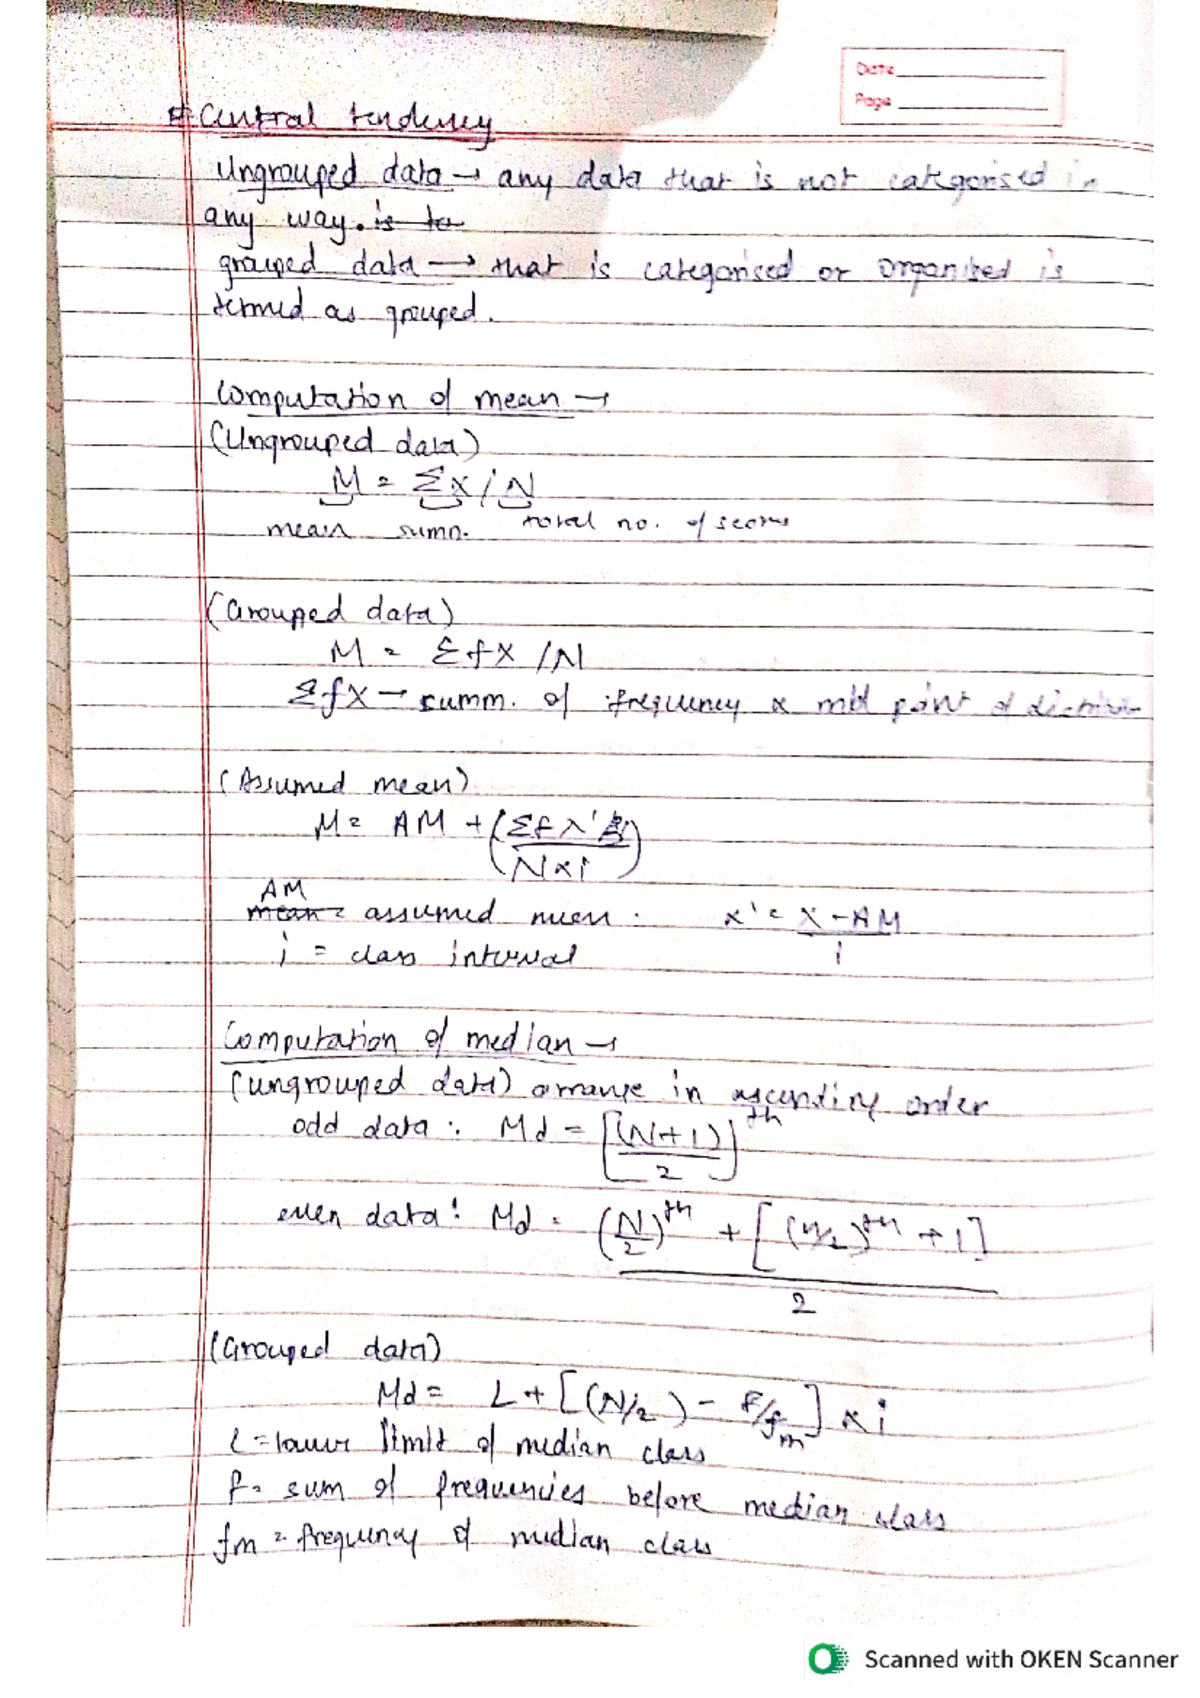 Date
Page
# Central tendency
Ungrouped data → any data that is not categorised in
any way. is to
grouped data → that is categorised or organised is
termed as grouped.
Computation of mean →
(Ungrouped data)
M = Σx / N
mean summ. total no. of scores
(Grouped data)
M = Σfx / N
Σfx → summ. of frequency x mid point of
(Assumed mean)
M = AM + (Σfx' / N x i)
AM
mean = assumed mean. x' = X - AM / i
i = class interval
Computation of median →
(ungrouped data) arrange in ascending order
odd data : Md = [(N+1) / 2]th
even data : Md = (N/2)th + [(N/2)th + 1] / 2
(Grouped data)
Md = L + [(N/2) - F/fm] x i
L = lower limit of median class
F = sum of frequencies before median class
fm = frequency of median class
Scanned with OKEN Scanner